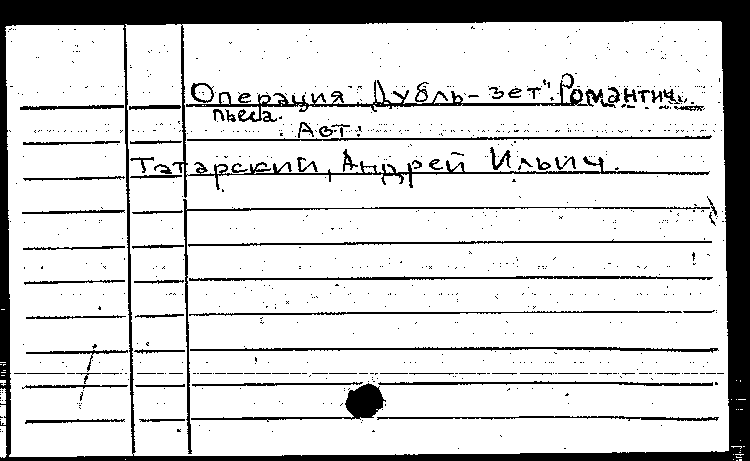 Операция "Дубль-зет". Романтич.
пьеса.
Авт.:
Татарский, Андрей Ильич.